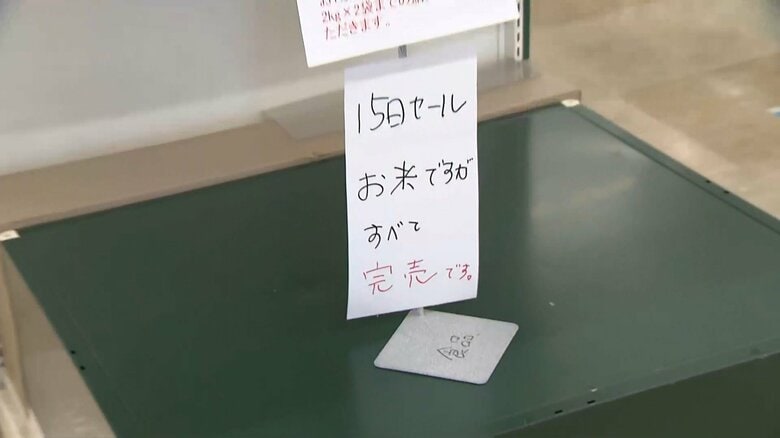 2kg×2袋までの
ただきます。
15日セール
お米ですが
すべて
完売です。
食品